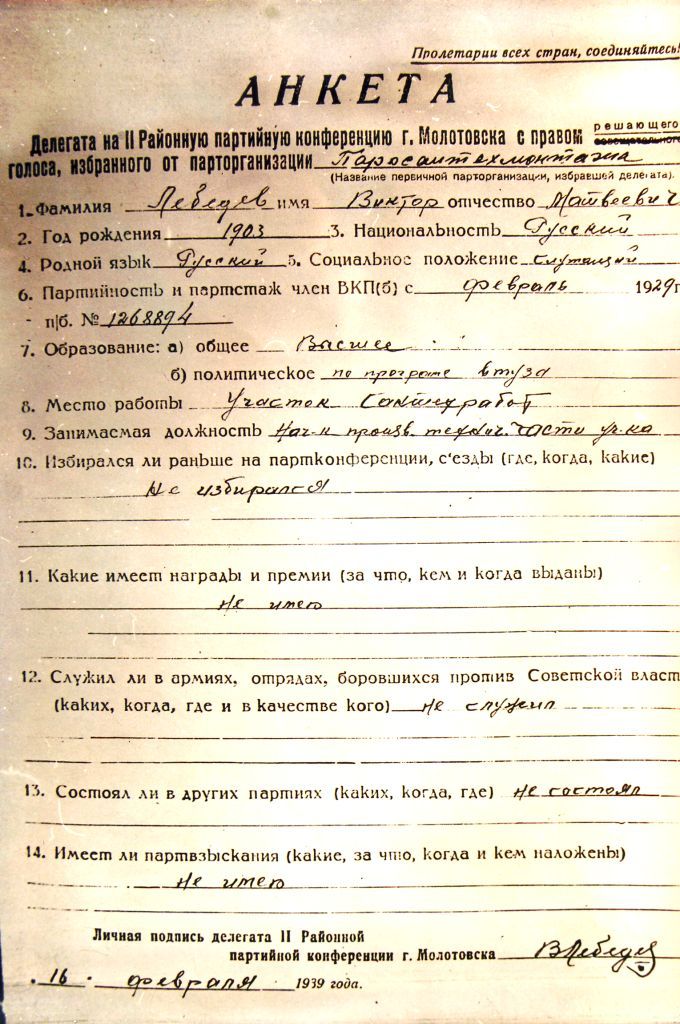 Пролетарии всех стран, соединяйтесь!
АНКЕТА
Делегата на II Районную партийную конференцию г. Молотовска с правом решающего совещательного
голоса, избранного от парторганизации Паросантехмонтажа
(Название первичной парторганизации, избравшей делегата).
1. Фамилия Лебедев имя Виктор отчество Матвеевич
2. Год рождения 1903 3. Национальность Русский
4. Родной язык Русский 5. Социальное положение служащий
6. Партийность и партстаж член ВКП(б) с февраль 1929 г
п/б. № 1268894
7. Образование: а) общее Высшее
б) политическое по програме втуза
8. Место работы Участок Сантехработ
9. Занимаемая должность Нач-к произв. технич. части уч-ка
10. Избирался ли раньше на партконференции, с'езды (где, когда, какие)
Не избирался
11. Какие имеет награды и премии (за что, кем и когда выданы)
Не имею
12. Служил ли в армиях, отрядах, боровшихся против Советской власт
(каких, когда, где и в качестве кого) не служил
13. Состоял ли в других партиях (каких, когда, где) не состоял
14. Имеет ли партвзыскания (какие, за что, когда и кем наложены)
Не имею
Личная подпись делегата II Районной
партийной конференции г. Молотовска ВЛебедев
16 февраля 1939 года.